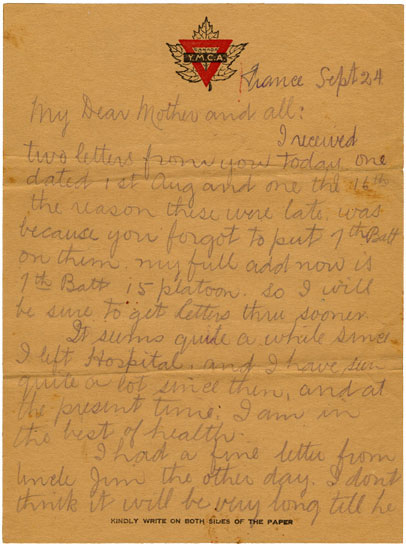 Y.M.C.A
France Sept 24
My Dear Mother and all:
I received
two letters from you today one
dated 1st Aug and one the 16th
the reason these were late was
because you forgot to put 7th Batt
on them. my full add now is
7th Batt 15 platoon. so I will
be sure to get letters thru sooner.
It seems quite a while since
I left Hospital, and I have seen
quite a lot since then, and at
the present time; I am in
the best of health.
I had a fine letter from
Uncle Jim the other day. I don't
think it will be very long till he
KINDLY WRITE ON BOTH SIDES OF THE PAPER